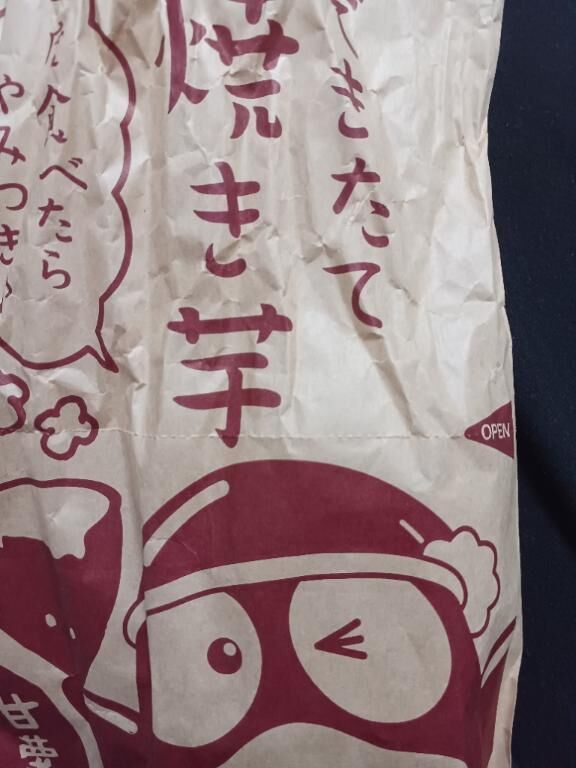 できたて
焼き芋
食べたら
やみつき
OPEN